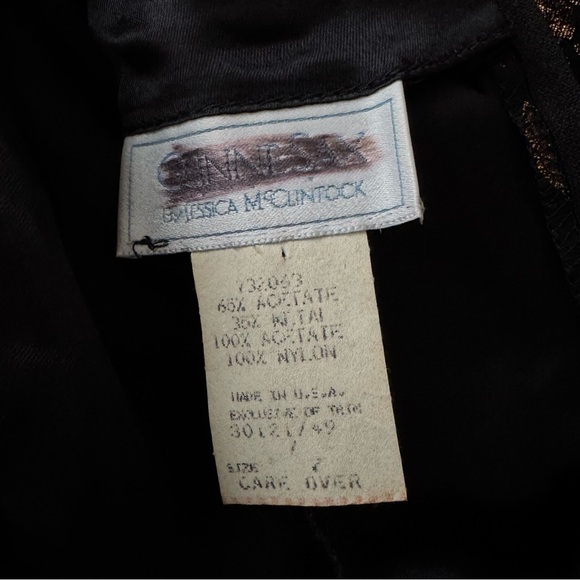 GUNNE SAX
BY JESSICA McCLINTOCK
732063
65% ACETATE
35% METAL
100% ACETATE
100% NYLON
MADE IN U.S.A.
EXCLUSIVE OF TRIM
30121/49
SIZE
CARE OVER